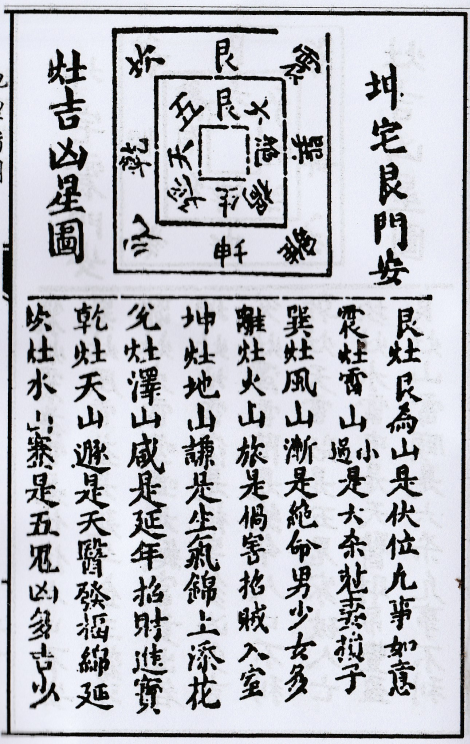 坤宅艮門安
灶吉凶星圖
艮
震
巽
離
坤
兌
乾
坎
艮
六
絕
禍
生
延
天
五
艮灶艮為山是伏位九事如意
震灶雷山小過是六杀尅妻損子
巽灶風山漸是絕命男少女多
離灶火山旅是禍害招賊入室
坤灶地山謙是生氣錦上添花
兌灶澤山咸是延年招財進寶
乾灶天山遯是天醫發福綿延
坎灶水山蹇是五鬼凶多吉少